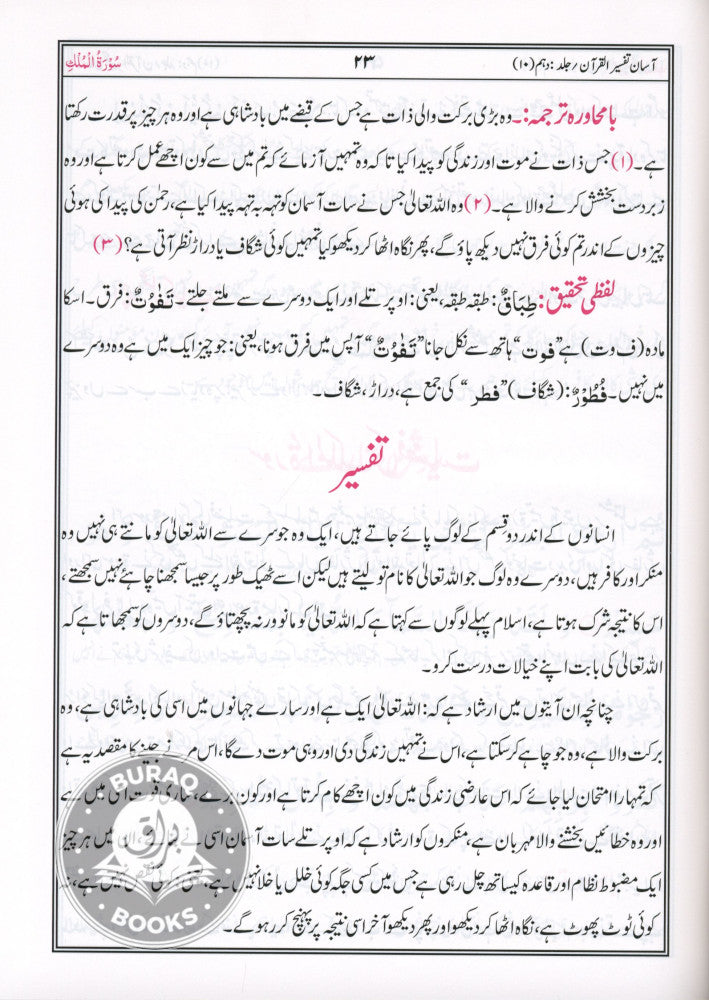 آسان تفسیر القرآن / جلد : دہم (۱۰) ۲۳ سُوْرَةُ الْمُلْكِ
بامحاورہ ترجمہ:۔ وہ بڑی برکت والی ذات ہے جس کے قبضے میں بادشاہی ہے اور وہ ہر چیز پر قدرت رکھتا
ہے۔ (۱) جس ذات نے موت اور زندگی کو پیدا کیا تاکہ وہ تمہیں آزمائے کہ تم میں سے کون اچھے عمل کرتا ہے اور وہ
زبردست بخشش کرنے والا ہے۔ (۲) وہ اللہ تعالیٰ جس نے سات آسمان کو تہہ بہ تہہ پیدا کیا ہے، رحمٰن کی پیدا کی ہوئی
چیزوں کے اندر تم کوئی فرق نہیں دیکھ پاؤ گے، پھر نگاہ اٹھا کر دیکھو کیا تمہیں کوئی شگاف یا دراڑ نظر آتی ہے؟ (۳)
لفظی تحقیق: طِبَاقٌ: طبقہ طبقہ، یعنی: اوپر تلے اور ایک دوسرے سے ملتے جلتے۔ تَفٰوُتٌ: فرق۔ اسکا
مادہ (ف و ت) ہے ”فوت“ ہاتھ سے نکل جانا ”تَفٰوُتٌ“ آپس میں فرق ہونا، یعنی: جو چیز ایک میں ہے وہ دوسرے
میں نہیں۔ فُطُوْرٌ: (شگاف) ”فطر“ کی جمع ہے، دراڑ، شگاف۔
تفسیر
انسانوں کے اندر دو قسم کے لوگ پائے جاتے ہیں، ایک وہ جو سرے سے اللہ تعالیٰ کو مانتے ہی نہیں وہ
منکر اور کافر ہیں، دوسرے وہ لوگ جو اللہ تعالیٰ کا نام تو لیتے ہیں لیکن اسے ٹھیک طور پر جیسا سمجھنا چاہئے نہیں سمجھتے،
اس کا نتیجہ شرک ہوتا ہے، اسلام پہلے لوگوں سے کہتا ہے کہ اللہ تعالیٰ کو مانو ورنہ پچھتاؤ گے، دوسروں کو سمجھاتا ہے کہ
اللہ تعالیٰ کی بابت اپنے خیالات درست کرو۔
چنانچہ ان آیتوں میں ارشاد ہے کہ: اللہ تعالیٰ ایک ہے اور سارے جہانوں میں اسی کی بادشاہی ہے، وہ
برکت والا ہے، وہ جو چاہے کر سکتا ہے، اس نے تمہیں زندگی دی اور وہی موت دے گا، اس مرنے جینے کا مقصد یہ ہے
کہ تمہارا امتحان لیا جائے کہ اس عارضی زندگی میں کون اچھے کام کرتا ہے اور کون برے، ساری قوت اسی میں ہے
اور وہ خطائیں بخشنے والا مہربان ہے، منکروں کو ارشاد ہے کہ اوپر تلے سات آسمان اسی نے بنائے، ان میں ہر چیز
ایک مضبوط نظام اور قاعدہ کیساتھ چل رہی ہے جس میں کسی جگہ کوئی خلل یا خلا نہیں ہے، کوئی نہیں ہے، نہ
کوئی ٹوٹ پھوٹ ہے، نگاہ اٹھا کر دیکھو اور پھر دیکھو آخر اسی نتیجہ پر پہنچ کر رہو گے۔
BURAQ
براق
BOOKS